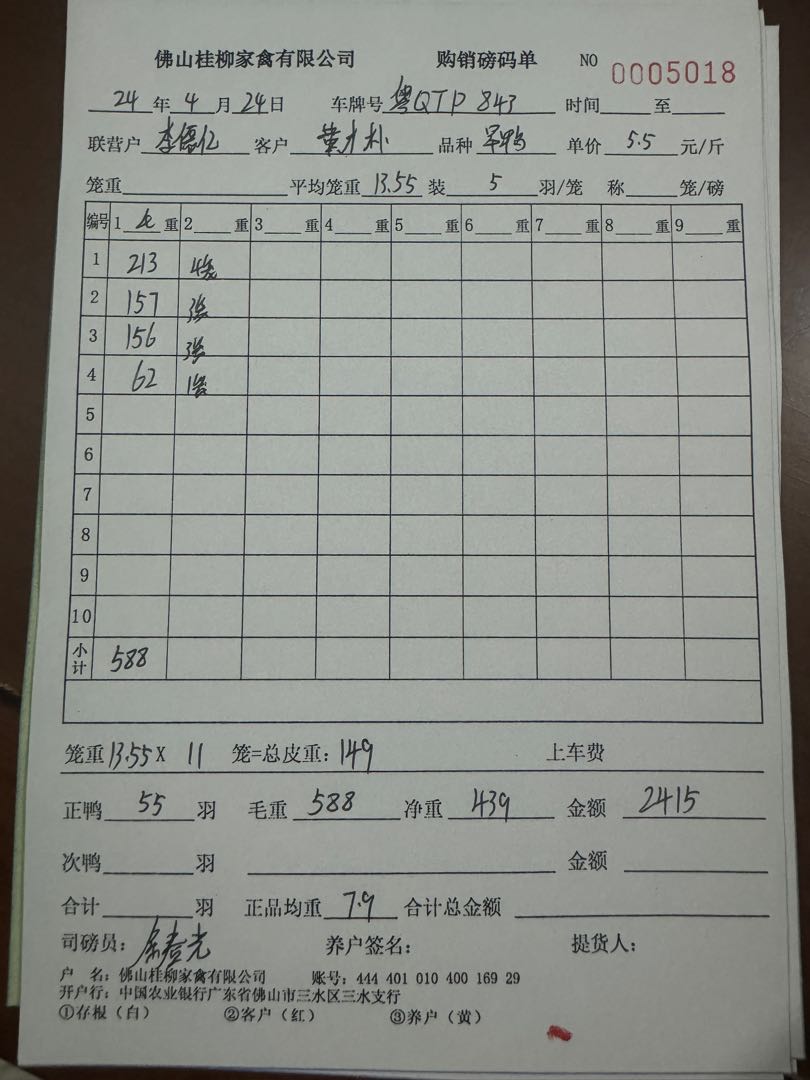 佛山桂柳家禽有限公司 购销磅码单 NO 0005018
24 年 4 月 24 日 车牌号 粤QTP 843 时间 至
联营户 李德亿 客户 叶才朴 品种 旱鸭 单价 5.5 元/斤
笼重 平均笼重 13.55 装 5 羽/笼 称 笼/磅
编号 1 毛 重 2 重 3 重 4 重 5 重 6 重 7 重 8 重 9 重
1 213 4笼
2 157 3笼
3 156 3笼
4 62 1笼
5
6
7
8
9
10
小计 588
笼重 13.55 X 11 笼=总皮重: 149 上车费
正鸭 55 羽 毛重 588 净重 439 金额 2415
次鸭 羽 金额
合计 羽 正品均重 7.9 合计总金额
司磅员: 养户签名: 提货人:
户 名: 佛山桂柳家禽有限公司 账号: 444 401 010 400 169 29
开户行: 中国农业银行广东省佛山市三水区三水支行
①存根(白) ②客户(红) ③养户(黄)